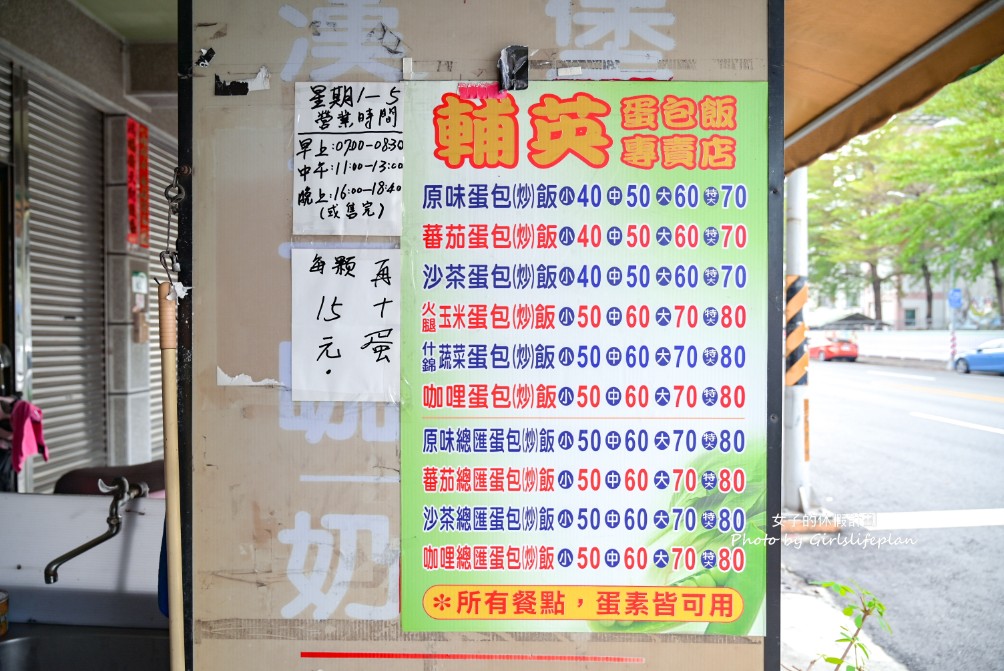 漢堡
奶
星期1-5
營業時間
早上:0700-0830
中午:11:00-13:00
晚上:16:00-18:40
(或售完)
再十蛋
每顆15元.
輔英 蛋包飯專賣店
原味蛋包(炒)飯 小40 中50 大60 特大70
蕃茄蛋包(炒)飯 小40 中50 大60 特大70
沙茶蛋包(炒)飯 小40 中50 大60 特大70
火腿玉米蛋包(炒)飯 小50 中60 大70 特大80
什錦蔬菜蛋包(炒)飯 小50 中60 大70 特大80
咖哩蛋包(炒)飯 小50 中60 大70 特大80
原味總匯蛋包(炒)飯 小50 中60 大70 特大80
蕃茄總匯蛋包(炒)飯 小50 中60 大70 特大80
沙茶總匯蛋包(炒)飯 小50 中60 大70 特大80
咖哩總匯蛋包(炒)飯 小50 中60 大70 特大80
＊所有餐點，蛋素皆可用
女子的休假計劃
Photo by Girlslifeplan